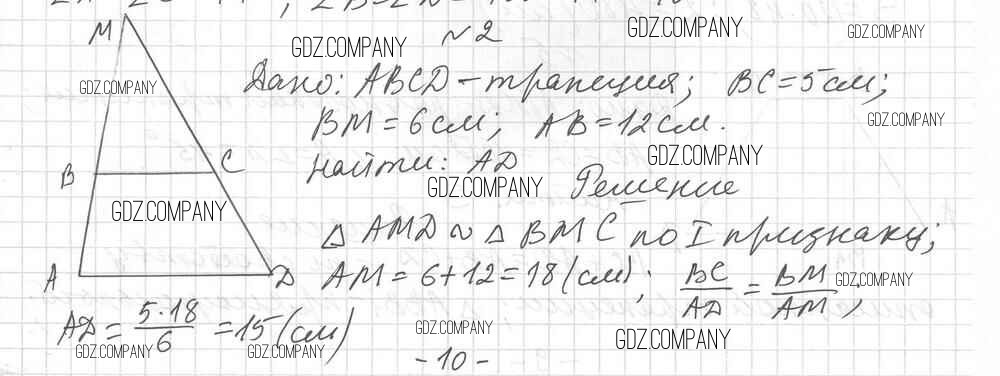 M
№2
Дано: ABCD - трапеция; BC = 5 см;
BM = 6 см; AB = 12 см.
Найти: AD
Решение
B C
△ AMD ~ △ BMC по I признаку;
A D AM = 6 + 12 = 18 (см); BC/AD = BM/AM,
AD = 5·18/6 = 15 (см)
- 10 -
GDZ.COMPANY
GDZ.COMPANY
GDZ.COMPANY
GDZ.COMPANY
GDZ.COMPANY
GDZ.COMPANY
GDZ.COMPANY
GDZ.COMPANY
GDZ.COMPANY
GDZ.COMPANY
GDZ.COMPANY
GDZ.COMPANY
GDZ.COMPANY